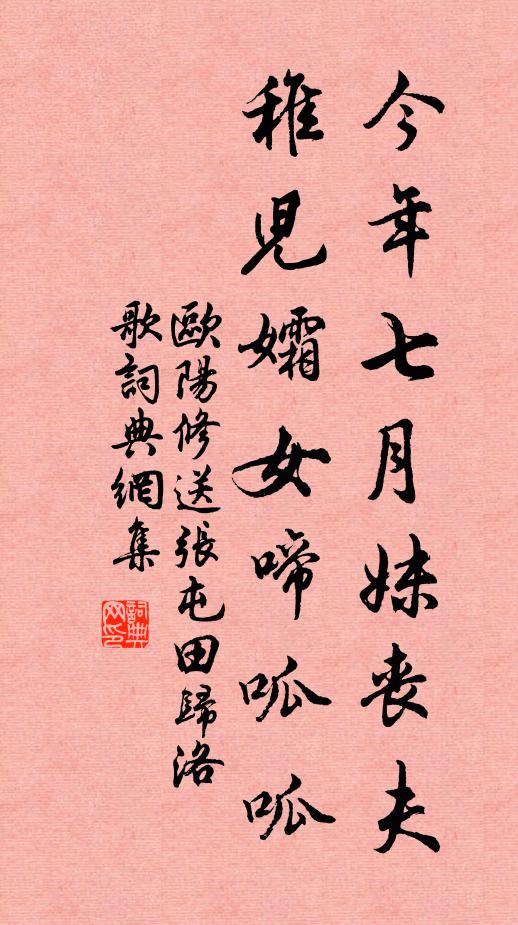 今年七月妹喪夫
稚兒孀女啼呱呱
歐陽修送張屯田歸洛
歌詞典網集
詞典网印